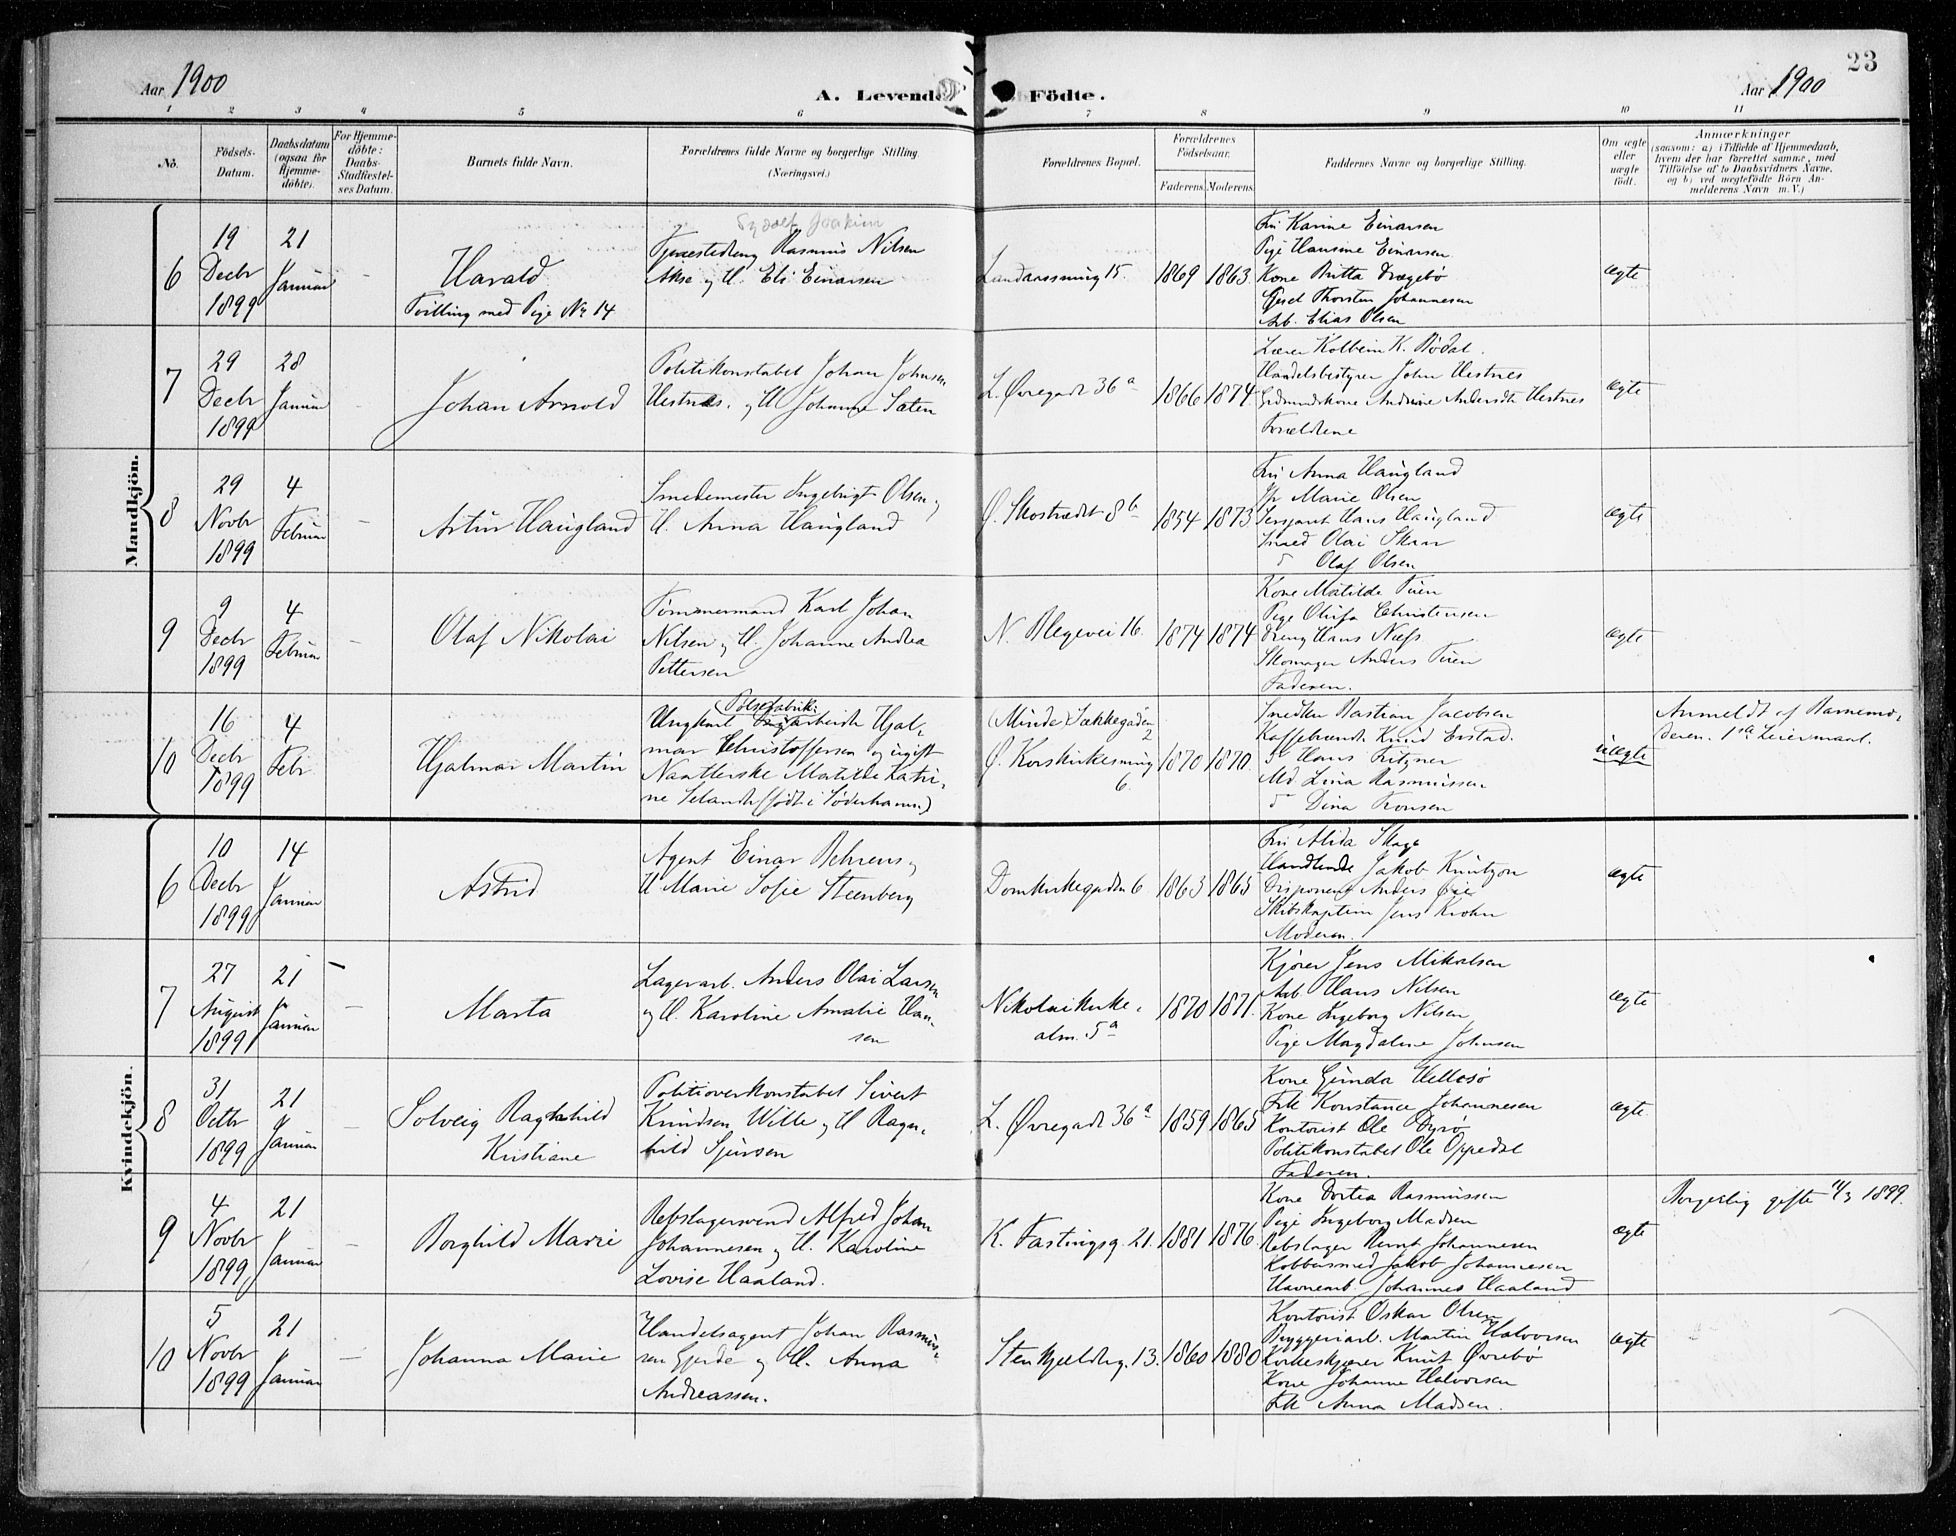 23
Aar 1900
A. Levende Födte.
Aar 1900
1 2 3 4 5 6 7 8 9 10 11
No.
Födsels-
Datum.
Daabsdatum
(ogsaa for
Hjemme-
döbte).
For Hjemme-
döbte:
Daabs-
Stadfæstel-
ses Datum.
Barnets fulde Navn.
Forældrenes fulde Navne og borgerlige Stilling.
(Næringsvei.)
Forældrenes Bopæl.
Forældrenes
Födselsaar.
Faderens. Moderens.
Faddernes Navne og borgerlige Stilling.
Om ægte
eller
uægte
födt.
Anmærkninger
(saasom: a) i Tilfælde af Hjemmedaab,
hvem der har forrettet samme, med
Tilföielse af to Daabsvidners Navne,
og b) ved uægtefödte Börn An-
melderens Navn m. V.)
Mandkjön.
6
19
Decbr
1899
21
Januar
Harald
Tvilling med Pige No 14
Joakim
Rasmus Nilsen
og H. Eli Einarsen
15.
1869 1863
Fru Karine Einarsen
Pige Hansine Einarsen
Kone Britta Drægebø
Thorsten Johannesen
Arb. Elias Olsen
ægte
7
29
Decbr
1899
28
Januar
Johan Arnold
Politikonstabel Johan Johnsen
Vestnes. og H. Johanne Sæten
L. Øvregade 36a
1866 1874
Lærer Kolbein K. Bödal.
Handelsbestyrer John Vestnes
Gidmundskone Andrine Andersdtr Vestnes
Forældrene
ægte
8
29
Novbr
1899
4
Februar
Artur Haugland
Smedemester Ingebrigt Olsen og
H. Anna Haugland
Ø. Skostrædet 8b
1854 1873
Fru Anna Haugland
Jfr Marie Olsen
Sersjant Hans Haugland
Smed Olai Skaar
Olaf Olsen
ægte
9
9
Decbr
1899
4
Februar
Olaf Nikolai
Tömmermand Karl Johan
Nilsen og H. Johanne Andrea
Pettersen
N. Blegevei 16.
1874 1874
Kone Matilde
Pige Olufa Christensen
Dreng Hans Næss
Skomager Anders
Faderen.
ægte
10
16
Decbr
1899
4
Febr
Hjalmar Martin
Pölsefabrik:
Ungkarl arbeider Hjal-
mar Christoffersen og ugift
Naatlerske Matilde Katri-
ne Selander (födt i Söderhamn)
(Minde) Sækkegaden
2
Ø. Korskirkesmug
6.
1870 1870.
Snedker Bastian Jacobsen
Kaffebrændr. Knud Erstad.
Hans Fritzner
Md Lina Rasmussen
Dina Tronsen
uægte
Anmeldt af Barnemo-
deren. 1ste Leiermaal.
Kvindekjön.
6
10
Decbr
1899
14
Januar
Astrid
Agent Einar Behrens og
H Marie Sofie Steenberg
Domkirkegaden 6
1863 1865
Fru Alida Skage
Handlende Jakob Knutzon
Disponent Anders Öie
Skibskaptein Jens Krohn
Moderen.
ægte
7
27
August
1899
21
Januar
Marta
Lagerarb. Anders Olai Larsen
og H. Karoline Amalie Han-
sen
Nikolaikirke-
alm. 5a
1870 1871.
Kjører Jens Mikalsen
Arb. Hans Nilsen
Kone Ingeborg Nilsen
Pige Magdalene Johnsen
ægte
8
31
Octbr
1899
21
Januar
Solveig Ragnhild
Kristiane
Politioverkonstabel Sivert
Knudsen Wille og H Ragn-
hild Sjursen
L. Øvregade 36a
1859 1865
Kone Gunda Hellesö
Frk Konstance Johannesen
Kontorist Ole Dyrö
Politikonstabel Ole Oppedal
Faderen.
ægte
9
4
Novbr
1899
21
Januar
Borghild Marie
Rebslagersvend Alfred Johan
Johannesen og H. Karoline
Lovise Haaland.
K. Fastingsg. 21.
1881 1876
Kone Dortea Rasmussen
Pige Ingeborg Madsen
Rebslager Bernt Johannesen
Kobbersmed Jakob Johannesen
Havnearb. Johannes Haaland
ægte
Borgerlig gifte 11/3 1899.
10
5
Novbr
1899
21
Januar
Johanna Marie
Handelsagent Johan Rasmus-
sen Gjerde og H. Anna
Andreassen.
Stenkjeldeg. 13.
1860 1880
Kontorist Oskar Olsen
Bryggeriarb. Martin Halvorsen
Kirkeskjærer Knut Øvrebö
Kone Johanne Halvorsen
Frk Anna Madsen.
ægte